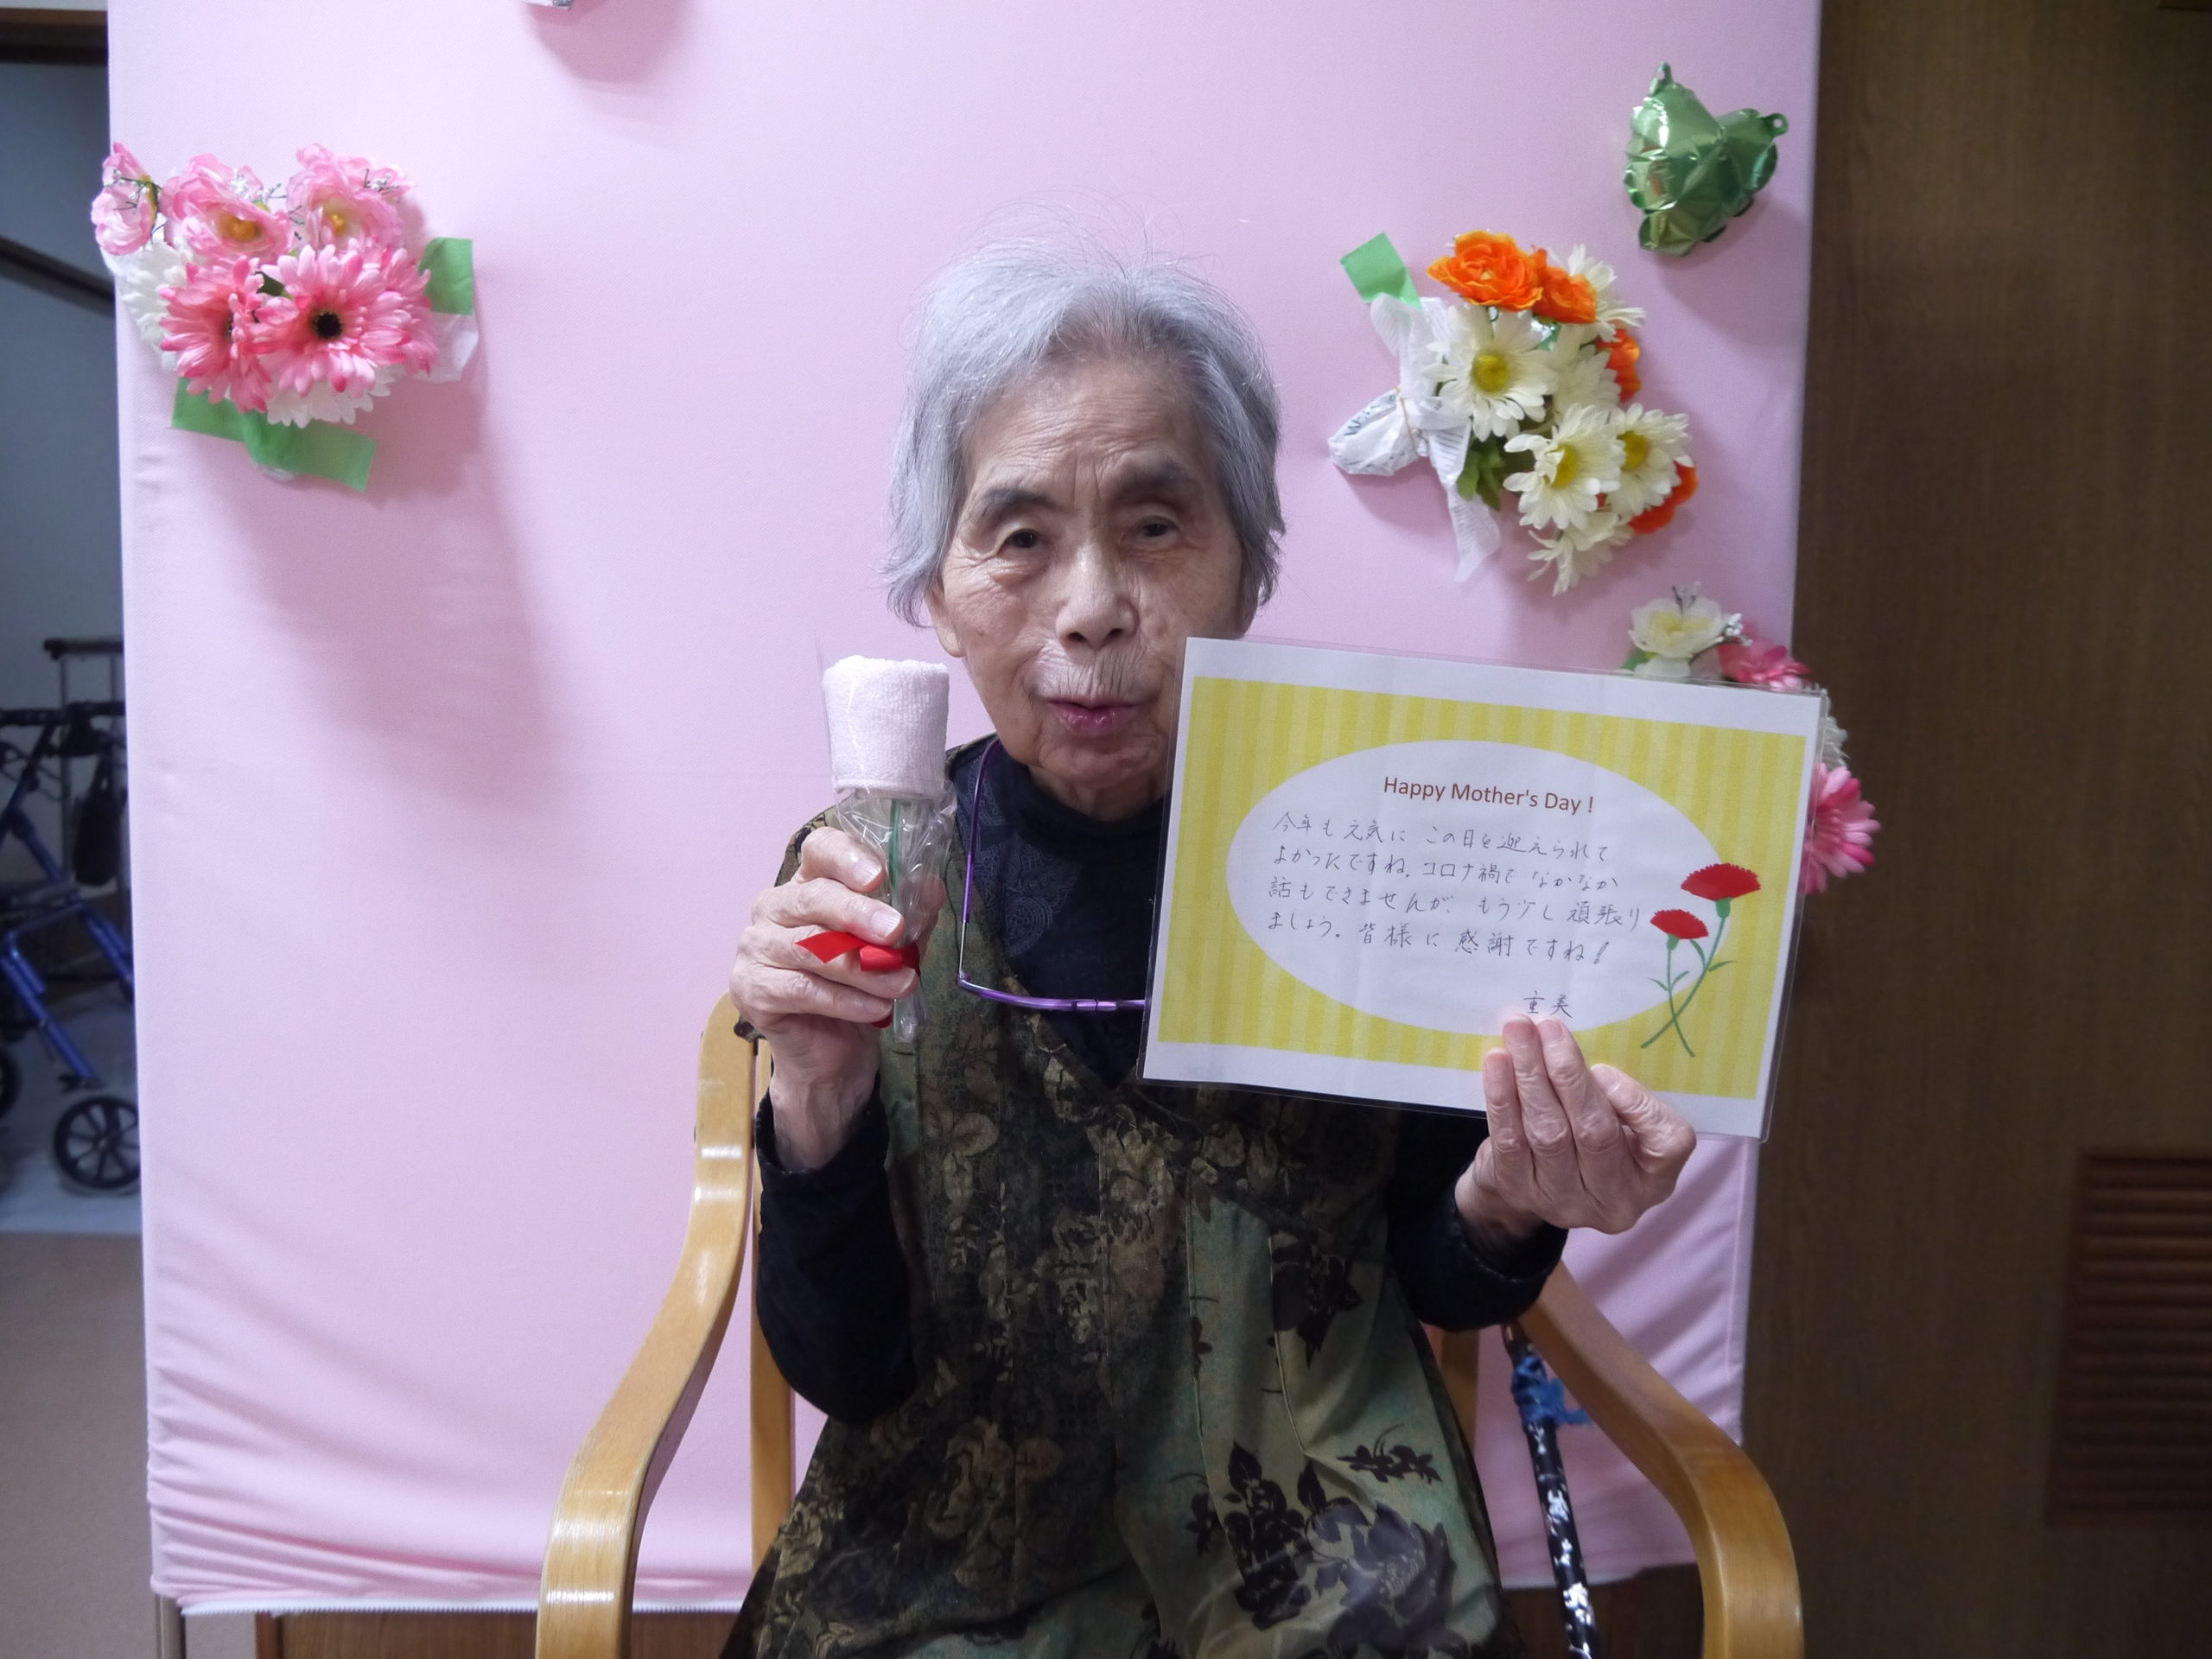 Happy Mother's Day !
今年も元気に この日を迎えられて
よかったですね。コロナ禍で なかなか
話もできませんが、もう少し頑張り
ましょう。皆様に感謝ですね!
重美